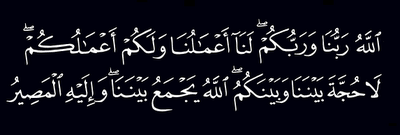 ٱللَّهُ رَبُّنَا وَرَبُّكُمْۖ لَنَآ أَعْمَـٰلُنَا وَلَكُمْ أَعْمَـٰلُكُمْۖ
لَا حُجَّةَ بَيْنَنَا وَبَيْنَكُمُۖ ٱللَّهُ يَجْمَعُ بَيْنَنَاۖ وَإِلَيْهِ ٱلْمَصِيرُ